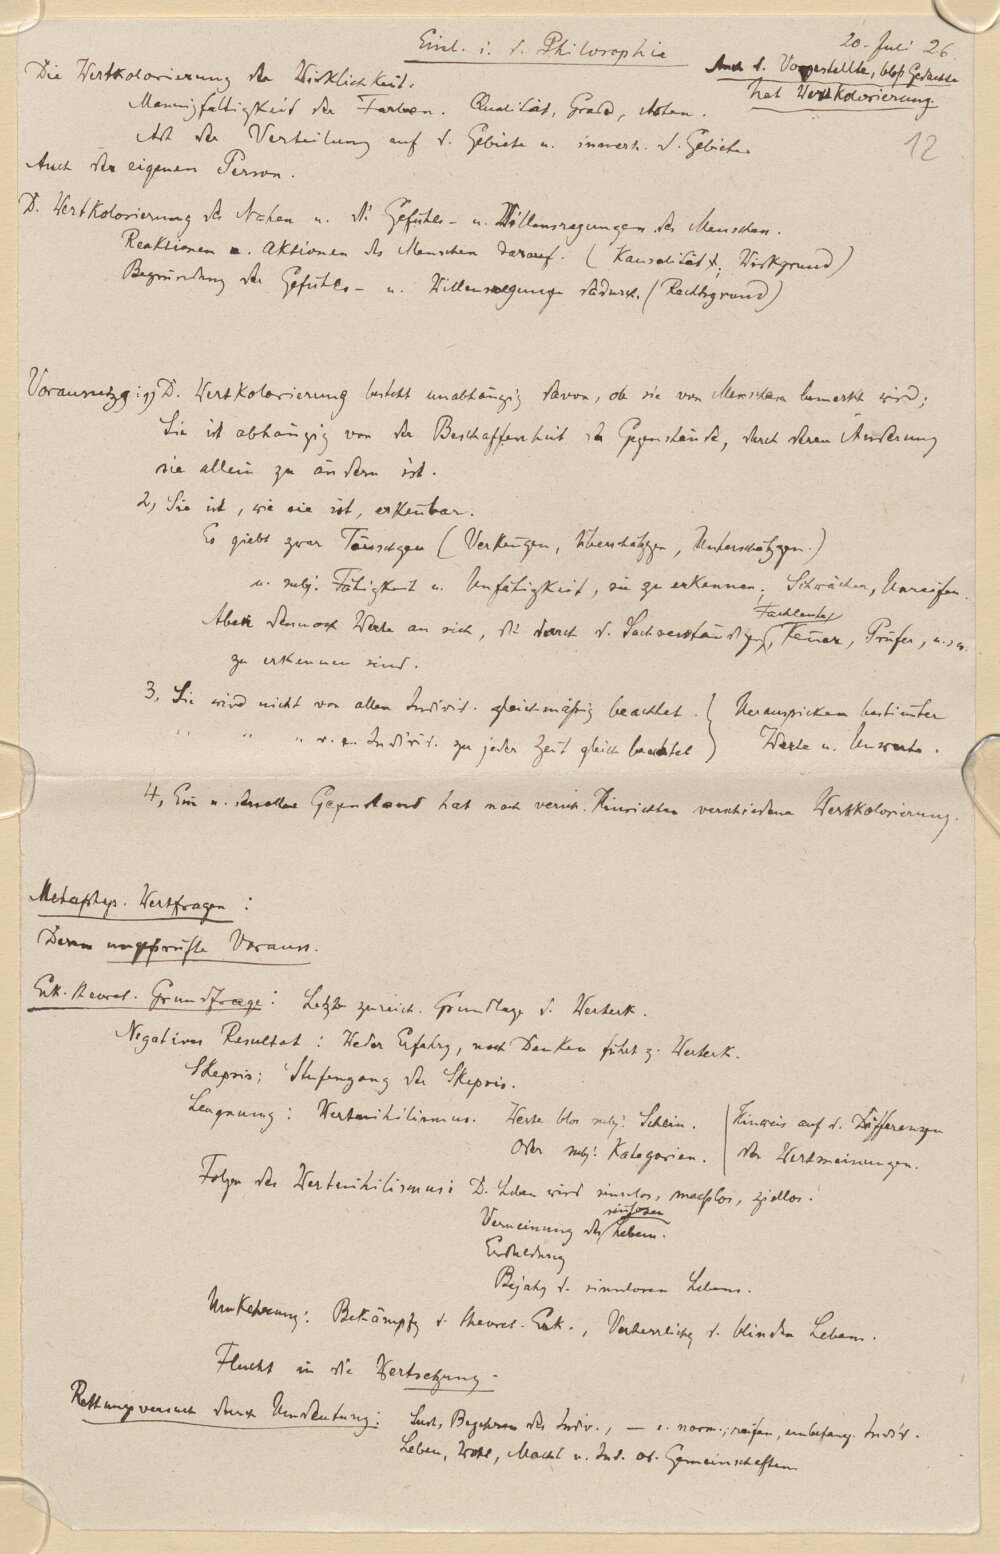 Einl. i. d. Philosophie
20. Juli 26.
Auch d. Vorgestellte, bloß Gedachte
hat Wertkolorierung
12
Die Wertkolorierung der Wirklichkeit.
Mannigfaltigkeit der Farben. Qualität, Grade, Arten.
Art der Verteilung auf d. Gebiete u. innerh. d. Gebiete.
Auch der eigenen Person.
D. Wertkolorierung der Nahen u. die Gefühls- u. Willensregungen des Menschen.
Reaktionen u. Aktionen des Menschen darauf. (Kausalität, Wirkgrund)
Begründung der Gefühls- u. Willensregungen dadurch. (Rechtsgrund)
Voraussetzg: 1) D. Wertkolorierung besteht unabhängig davon, ob sie von Menschen bemerkt wird;
Sie ist abhängig von der Beschaffenheit der Gegenstände, durch deren Änderung
sie allein zu ändern ist.
2, Sie ist, wie sie ist, erkenbar.
Es giebt zwar Täuschgen (Verkenngen, Überschätzgen, Unterschätzgen.)
u. subj. Fähigkeit u. Unfähigkeit, sie zu erkennen, Schwächen, Unreifen.
Aber dennoch Werte an sich, die durch d. Sachverständigen, Fachleute, Kenner, Prüfer, u.s.w.
zu erkennen sind.
3, Sie wird nicht von allen Individ. gleichmäßig beachtet. } Herauspicken bestimter
" " " v. e. Individ. zu jeder Zeit gleich beachtet } Werte u. Unwerte.
4, Ein u. derselbe Gegenstand hat nach versch. Hinsichten verschiedene Wertkolorierung.
Metaphys. Wertfragen:
Deren ungeprüfte Vorauss.
Erk. theoret. Grundfrage: Letzte zureich. Grundlage d. Werterk.
Negatives Resultat: Weder Erfahrg, noch Denken führt z. Werterk.
Skepsis; Stufengang der Skepsis.
Leugnung: Wertnihilismus. Werte blos subj. Schein. | Hinweis auf d. Differenzen
Oder subj. Kategorien. | der Wertmeinungen.
Folgen des Wertnihilismus: D. Leben wird sinnlos, maaßlos, ziellos.
Verneinung des sinnlosen Lebens.
Erduldung
Bejahg d. sinnlosen Lebens.
Umkehrung: Bekämpfg d. theoret. Erk., Verherrlichg d. blinden Lebens.
Flucht in die Wertsetzung.
Rettungsversuch durch Umdeutung: Lust, Begehren des Indiv., — e. norm., reifen, unbefang. Individ.
Leben, Wohl, Macht v. Ind. od. Gemeinschaften